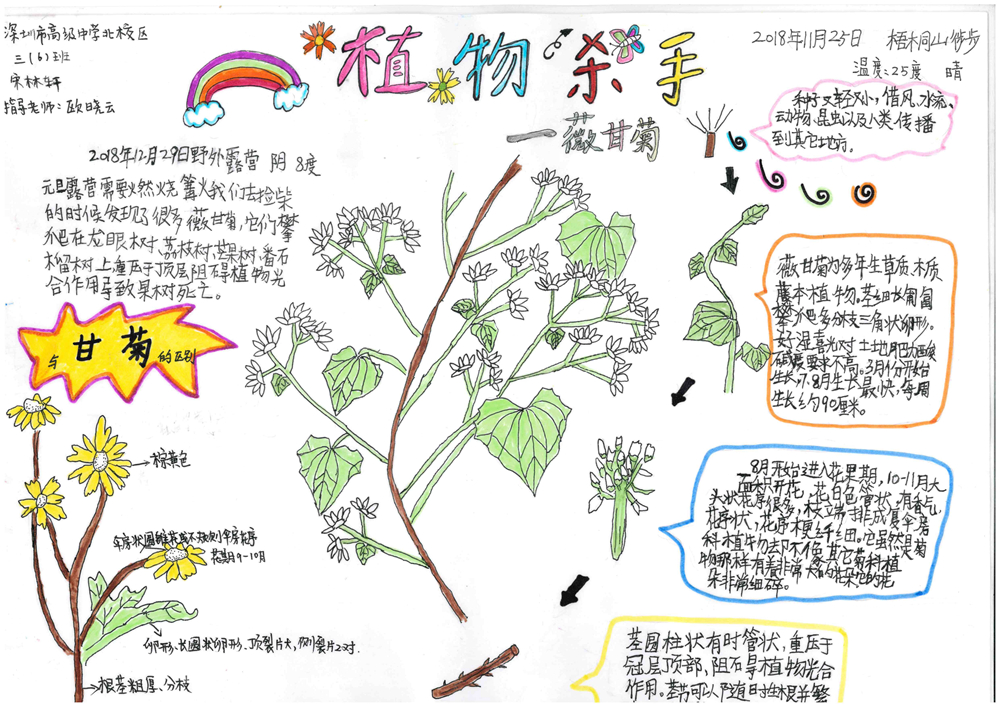 深圳市高级中学北校区
三(6)班
宋林轩
指导老师:欧晓云
植物杀手
—薇甘菊
2018年11月25日 梧桐山徒步
温度:25度 晴
种子又轻又小,借风、水流、
动物、昆虫以及人类传播
到其它地方。
2018年12月29日野外露营 阴 8度
元旦露营需要燃烧篝火我们去捡柴
的时候发现了很多薇甘菊,它们攀
爬在龙眼树、荔枝树、芒果树、番石
榴树上,重压于顶层阻碍植物光
合作用导致果树死亡。
与甘菊的区别
薇甘菊为多年生草质、木质
藤本植物。茎细长匍匐
攀爬多分枝三角状卵形。
好湿喜光对土地肥沃酸
碱度要求不高。3月份开始
生长,7.8月生长最快,每周
生长约90厘米。
棕黄色
花期9-10月
卵形、长圆状卵形、顶裂片大,侧裂片2对.
根茎粗厚、分枝
8月开始进入花果期,10-11月大
面积开花,花白色管状,有香气,
头状花序很多,枝立端排成复伞房
花序状,花序梗纤细。它虽然是菊
科植物却不像其它菊科植
物那样有着非常大的花朵,它的花
朵非常细碎。
茎圆柱状有时管状,重压于
冠层顶部,阻碍植物光合
作用。茎节可以随时生根并繁